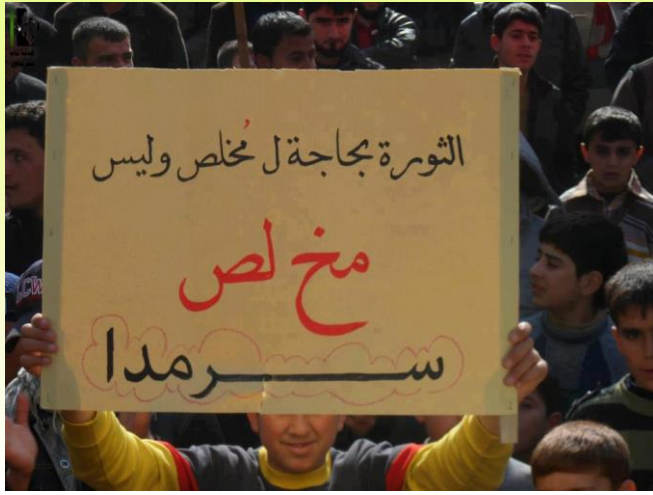 الثورة بحاجة ل مُخلص وليس
مخ لص
سرمدا